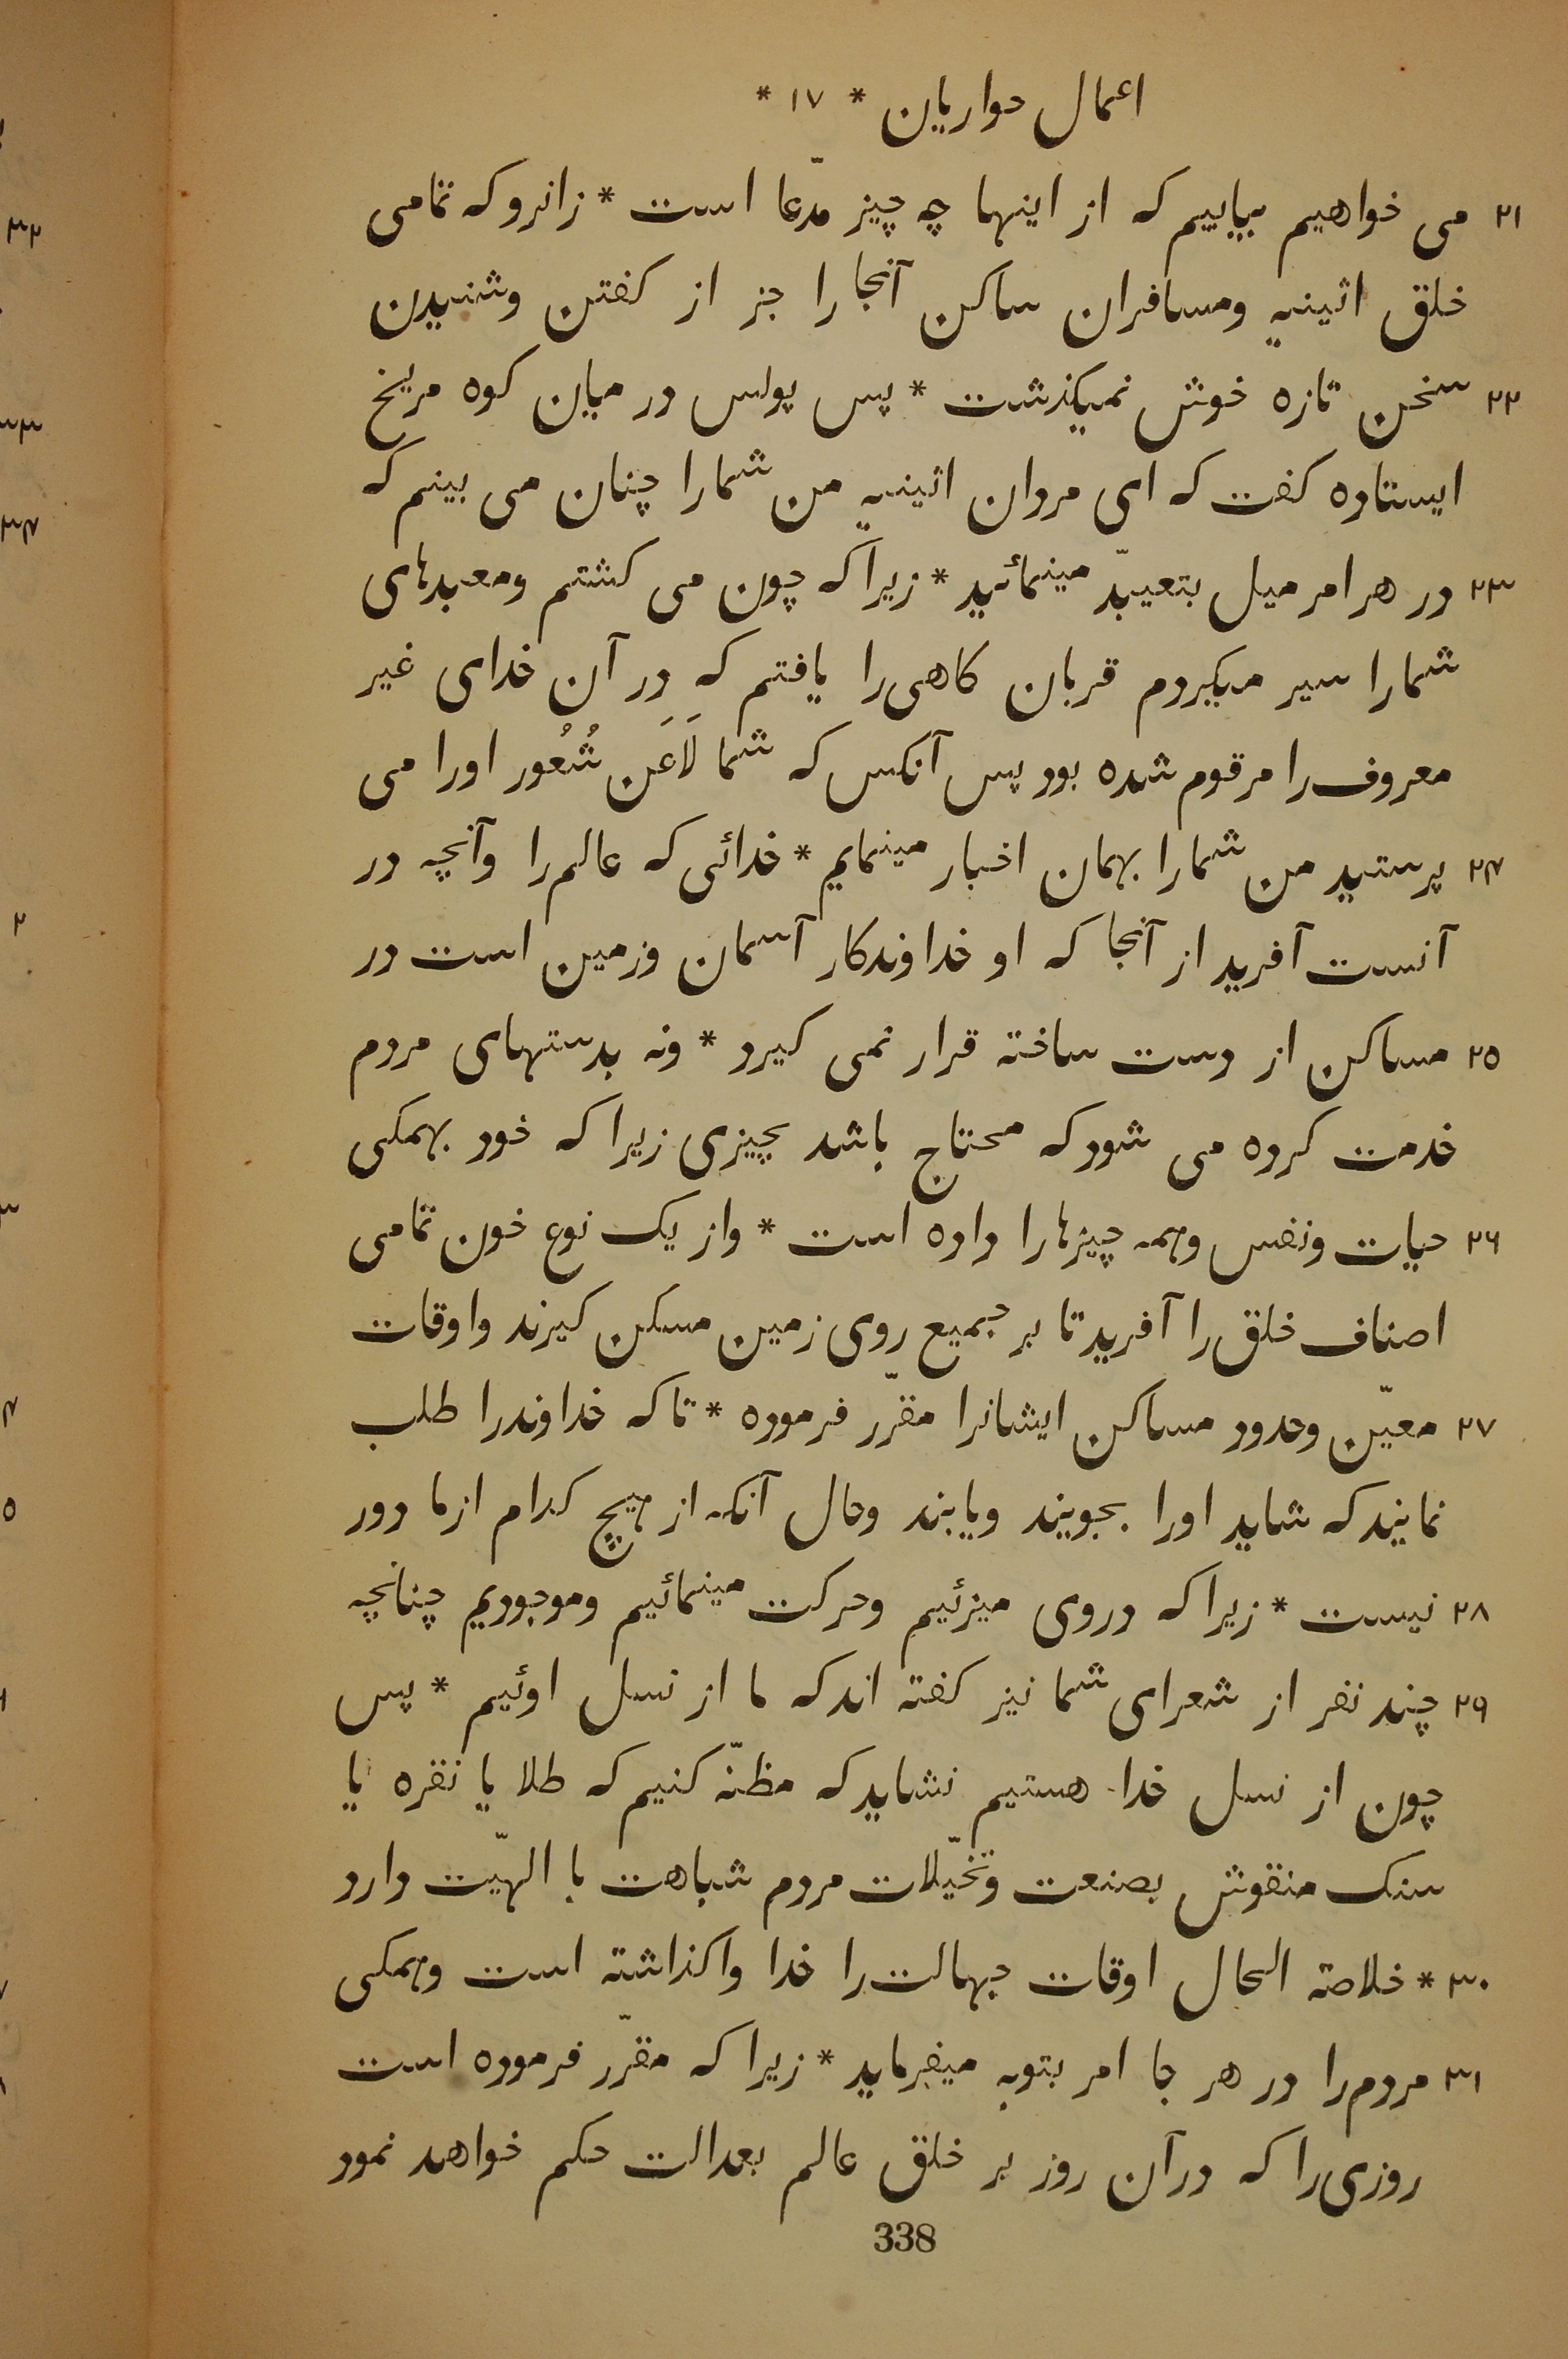 اعمال حواریان * ۱۷ *
۲۱ می خواهیم بیابیم که از اینها چه چیز مدّعا است * زانرو که تمامی
خلق اثینیه ومسافران ساکن آنجا را جز از کفتن وشنیدن
۲۲ سخن تازه خوش نمیکذشت * پس پولس در میان کوه مریخ
ایستاده کفت که ای مردان اثینیه من شمارا چنان می بینم که
۲۳ در هر امر میل بتعبّد مینمائید * زیرا که چون می کشتم ومعبدهای
شمارا سیر میکردم قربان کاهی را یافتم که در آن خدای غیر
معروف را مرقوم شده بود پس آنکس که شما لَاعَن شُعُور اورا می
۲۴ پرستید من شمارا بهمان اخبار مینمایم * خدائی که عالم را وآنچه در
آنست آفرید از آنجا که او خداوندکار آسمان وزمین است در
۲۵ مساکن از دست ساخته قرار نمی کیرد * ونه بدستهای مردم
خدمت کرده می شود که محتاج باشد بچیزی زیرا که خود بهمکی
۲۶ حیات ونفس وهمه چیزها را داده است * واز یک نوع خون تمامی
اصناف خلق را آفرید تا بر جمیع روی زمین مسکن کیرند واوقات
۲۷ معیّن وحدود مساکن ایشانرا مقرّر فرموده * تا که خداوند را طلب
نمایند که شاید اورا بجویند ویابند وحال آنکه از هیچ کدام از ما دور
۲۸ نیست * زیرا که در وی میزئیم وحرکت مینمائیم وموجودیم چنانچه
۲۹ چند نفر از شعرای شما نیز کفته اند که ما از نسل اوئیم * پس
چون از نسل خدا هستیم نشاید که مظنّه کنیم که طلا یا نقره یا
سنک منقوش بصنعت وتخیّلات مردم شباهت با الهیّت دارد
۳۰ * خلاصة الحال اوقات جهالت را خدا واکذاشته است وبهمکی
۳۱ مردم را در هر جا امر بتوبه میفرماید * زیرا که مقرّر فرموده است
روزی را که در آن روز بر خلق عالم بعدالت حکم خواهد نمود
338